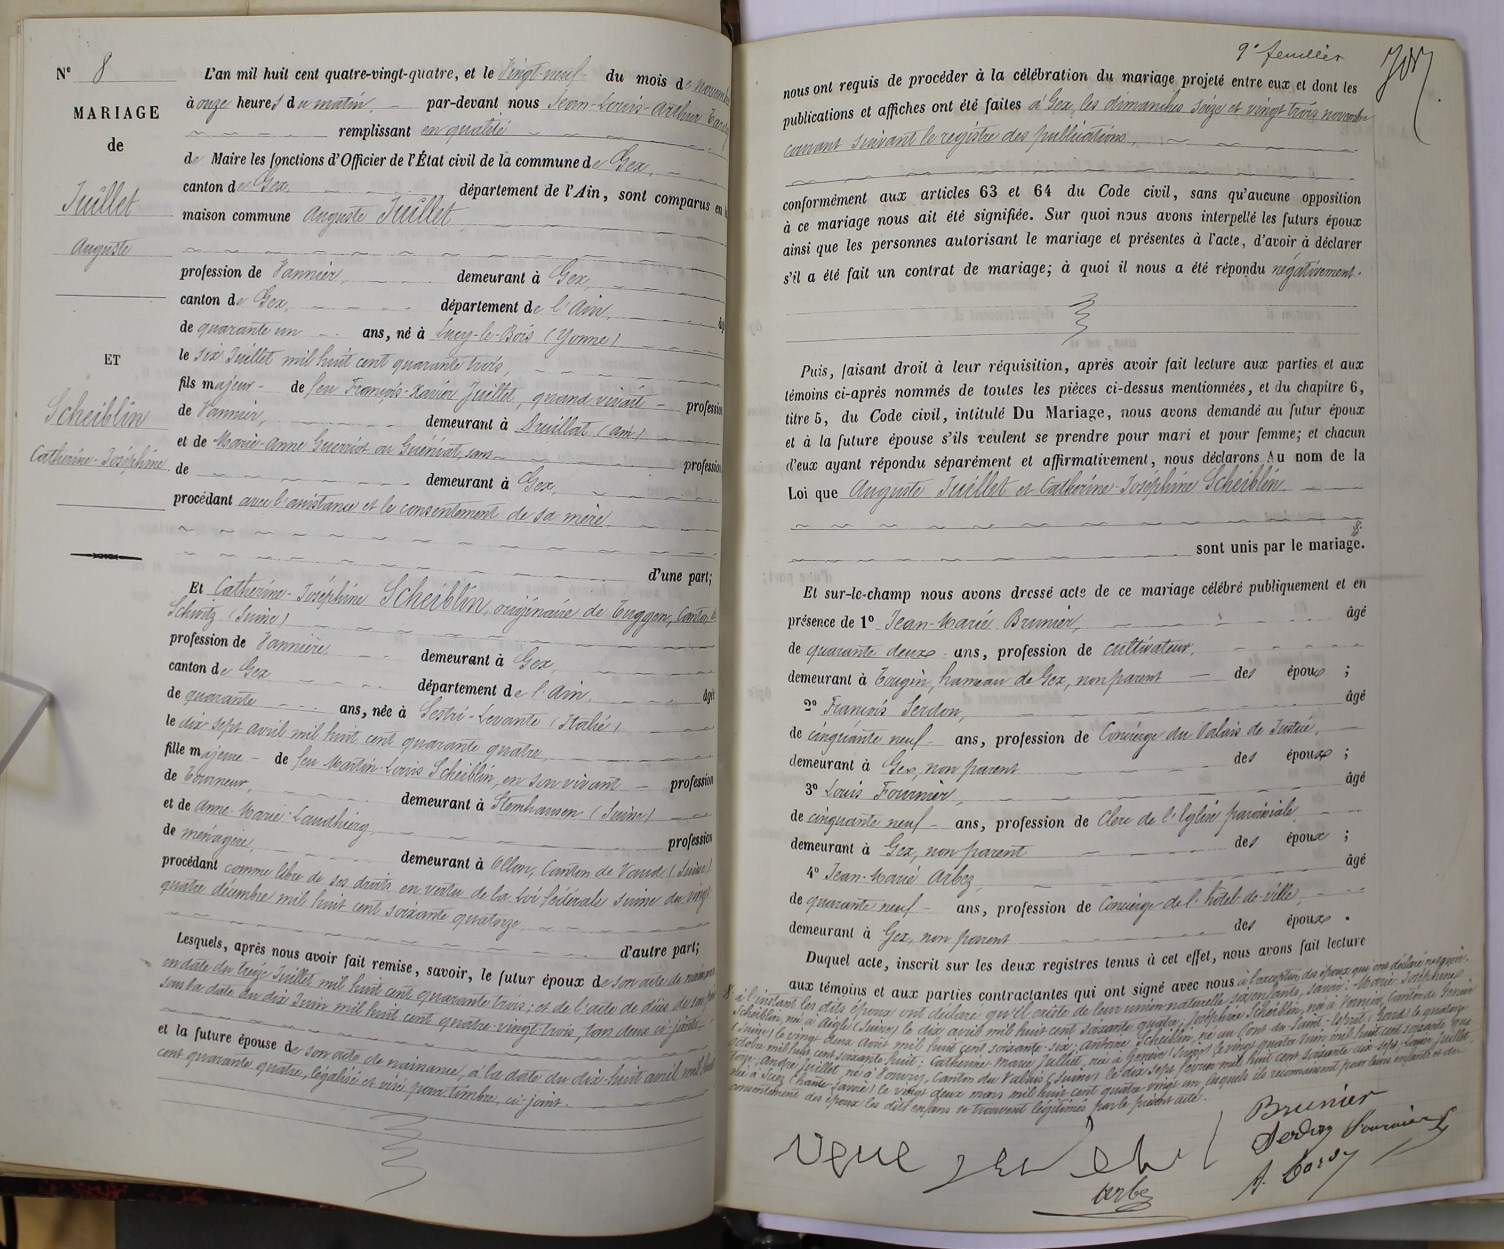 N° 8
MARIAGE
de
Juillet
Auguste
ET
Scheiblin
Catherine-Joséphine
L'an mil huit cent quatre-vingt-quatre, et le vingt-neuf du mois de Novembre
à onze heures du matin par-devant nous Jean-Louis-Arthur
remplissant en qualité
de Maire les fonctions d'Officier de l'État civil de la commune de Gex,
canton de Gex, département de l'Ain, sont comparus en la
maison commune Auguste Juillet
profession de Vannier, demeurant à Gex,
canton de Gex, département de l'Ain, âgé
de quarante un ans, né à Lucy-le-Bois (Yonne)
le six Juillet mil huit cent quarante trois,
fils majeur de feu François-Xavier Juillet, quand vivait profession
de Vannier, demeurant à Druillat (Ain)
et de Marie-Anne Gueniot ou Guéniat, sans profession
de demeurant à Gex,
procédant avec l'assistance et le consentement de sa mère
d'une part;
Et Catherine-Joséphine Scheiblin, originaire de Tuggen, Canton de
Schwitz (Suisse)
profession de Vannière demeurant à Gex,
canton de Gex département de l'Ain, âgée
de quarante ans, née à Sestri-Levante (Italie)
le dix sept avril mil huit cent quarante quatre,
fille majeure de feu Martin-Louis Scheiblin, en son vivant profession
de Tourneur, demeurant à (Suisse)
et de Anne Marie profession
de ménagère, demeurant à Ollon, Canton de Vaud (Suisse)
procédant comme libre de ses droits en vertu de la Loi fédérale suisse du vingt
quatre décembre mil huit cent soixante quatorze
d'autre part;
Lesquels, après nous avoir fait remise, savoir, le futur époux de son acte de naissance
en date du treize Juillet mil huit cent quarante trois; et de l'acte de décès de son père
sous la date du dix Juin mil huit cent quatre-vingt-trois, tous deux ci-joints.
et la future épouse de son acte de naissance, à la date du dix-huit avril mil huit
cent quarante quatre, légalisé et visé pour timbre, ci-joint.
9e feuillet
nous ont requis de procéder à la célébration du mariage projeté entre eux et dont les
publications et affiches ont été faites à Gex, les dimanches seize et vingt trois novembre
courant suivant le registre des publications,
conformément aux articles 63 et 64 du Code civil, sans qu'aucune opposition
à ce mariage nous ait été signifiée. Sur quoi nous avons interpellé les futurs époux
ainsi que les personnes autorisant le mariage et présentes à l'acte, d'avoir à déclarer
s'il a été fait un contrat de mariage; à quoi il nous a été répondu négativement.
Puis, faisant droit à leur réquisition, après avoir fait lecture aux parties et aux
témoins ci-après nommés de toutes les pièces ci-dessus mentionnées, et du chapitre 6,
titre 5, du Code civil, intitulé Du Mariage, nous avons demandé au futur époux
et à la future épouse s'ils veulent se prendre pour mari et pour femme; et chacun
d'eux ayant répondu séparément et affirmativement, nous déclarons Au nom de la
Loi que Auguste Juillet et Catherine-Joséphine Scheiblin
sont unis par le mariage.
Et sur-le-champ nous avons dressé acte de ce mariage célébré publiquement et en
présence de 1° Jean-Marie Brunier, âgé
de quarante deux ans, profession de cultivateur,
demeurant à Tougin, hameau de Gex, non parent des époux ;
2° François Serdon, âgé
de cinquante neuf ans, profession de Concierge du Palais de Justice,
demeurant à Gex, non parent des époux ;
3° Louis Fournier, âgé
de cinquante neuf ans, profession de Clerc de l'Eglise paroissiale,
demeurant à Gex, non parent des époux ;
4° Jean-Marie Arbez, âgé
de quarante neuf ans, profession de Concierge de l'hôtel-de-ville,
demeurant à Gex, non parent des époux.
Duquel acte, inscrit sur les deux registres tenus à cet effet, nous avons fait lecture
aux témoins et aux parties contractantes qui ont signé avec nous à l'exception des époux qui ont déclaré
à l'instant les dits époux ont déclaré qu'il existe de leur union naturelle six enfants, savoir: Marie Joséphine
Scheiblin, née à Aigle (Suisse) le dix avril mil huit cent soixante quatre; Joséphine Scheiblin, née à Canton de
(Suisse) le vingt deux août mil huit cent soixante-six; Antoine Scheiblin, né au Pont-Saint-Esprit (Gard) le quatorze
octobre mil huit cent soixante huit; Catherine Marie Juillet, née à le vingt quatre Juin mil huit cent soixante
André Juillet, né à Vouvry, Canton du Valais (Suisse) le dix sept février mil huit cent soixante dix sept; Juillet,
née à (Haute-Savoie) le vingt deux mars mil huit cent quatre vingt un lesquels ils reconnaissent pour leurs enfants et du
consentement des époux les dits enfans se trouvent légitimés par le présent acte.
Brunier
Serdon Fournier
Arbez